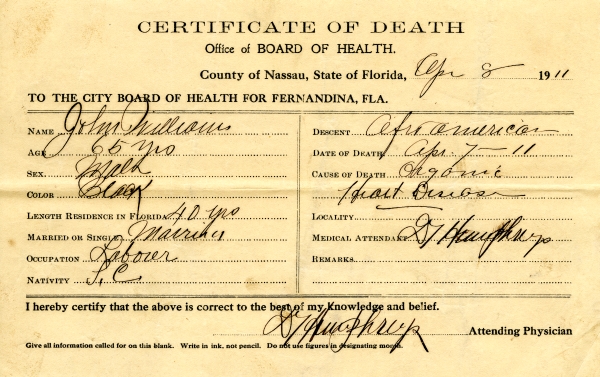 CERTIFICATE OF DEATH
Office of BOARD OF HEALTH.
County of Nassau, State of Florida, Apr 8 1911
TO THE CITY BOARD OF HEALTH FOR FERNANDINA, FLA.
NAME John Williams
AGE 65 yrs
SEX Male
COLOR Black
LENGTH RESIDENCE IN FLORIDA 40 yrs
MARRIED OR SINGLE Married
OCCUPATION Laborer
NATIVITY S.C.
DESCENT Afro american
DATE OF DEATH Apr 7-11
CAUSE OF DEATH Organic
Heart Disease
LOCALITY
MEDICAL ATTENDANT Dr Humphreys
REMARKS
I hereby certify that the above is correct to the best of my knowledge and belief.
Dr Humphreys Attending Physician
Give all information called for on this blank. Write in ink, not pencil. Do not use figures in designating month.